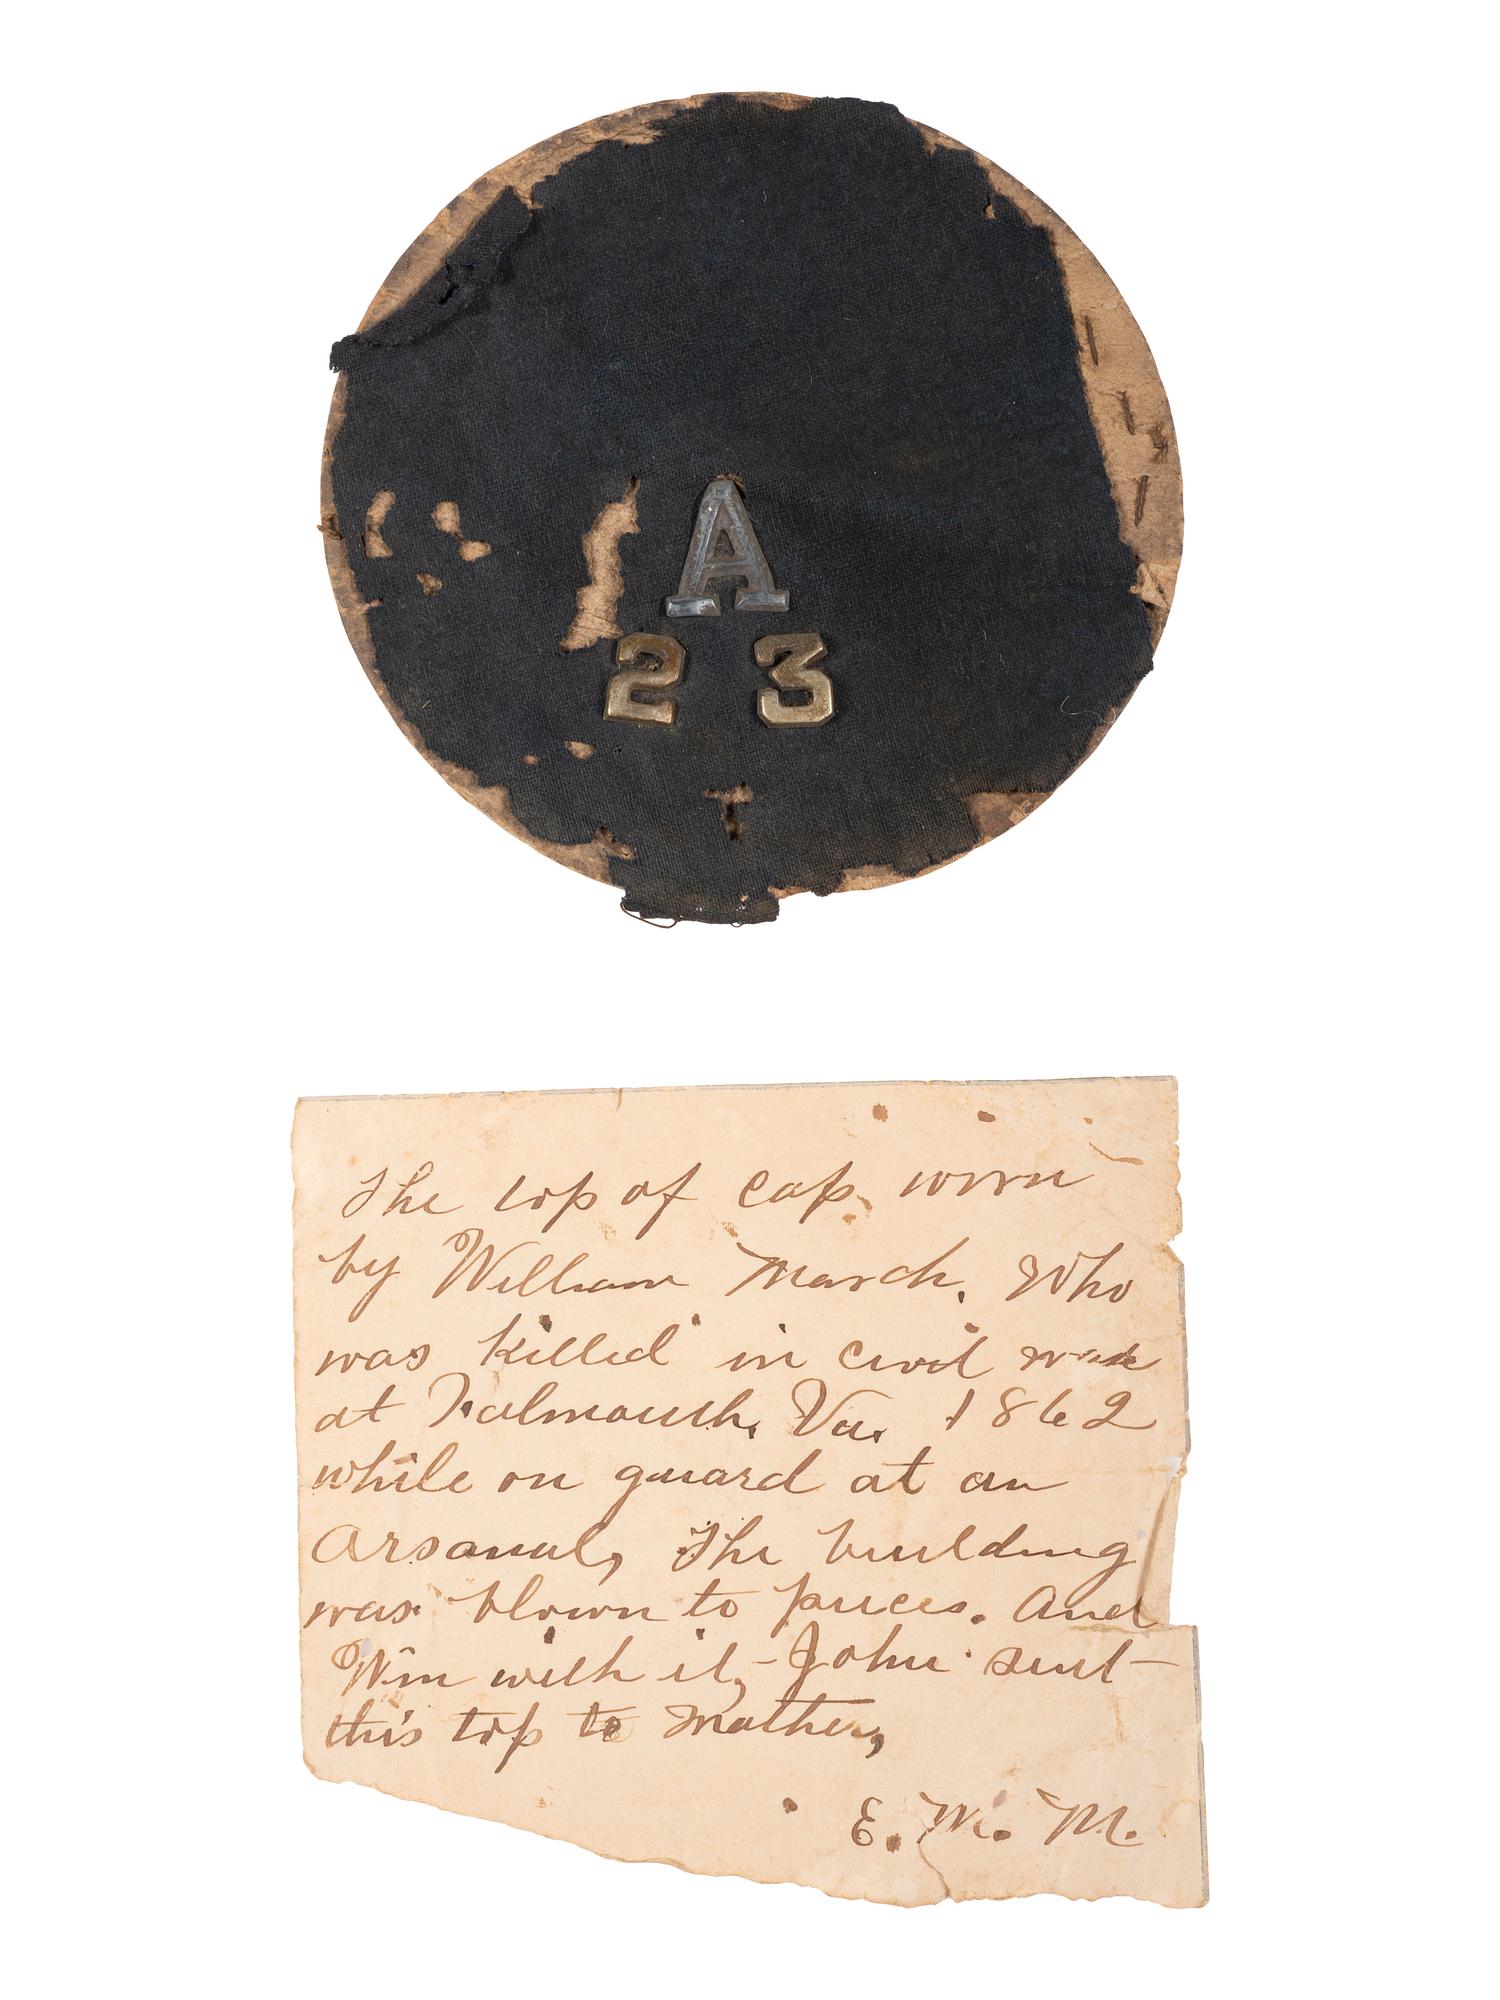 A
2 3
The top of cap, worn
by William March. Who
was killed in civil war
at Falmouth, Va. 1862
while on guard at an
Arsanal, The building
was blown to pieces. And
Wm with it, - John sent
this top to Mother,
E. W. M.